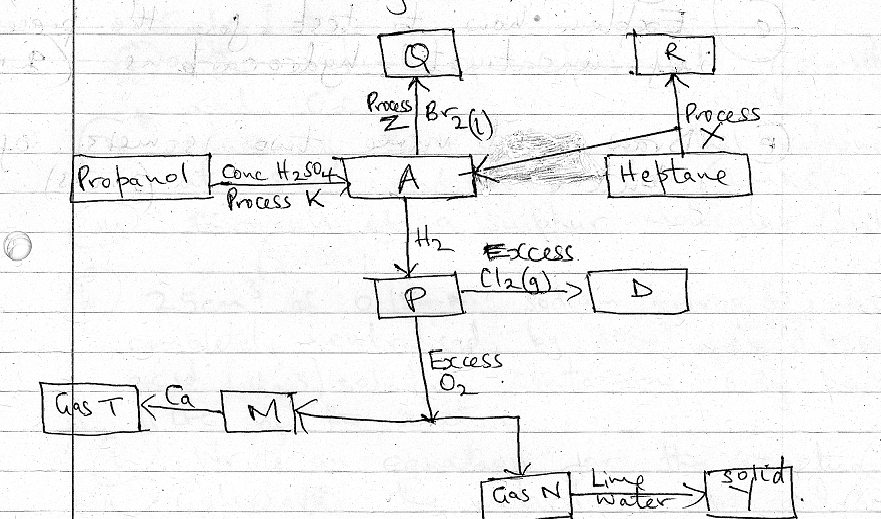 Q
R
Process
Z
Br2(l)
Process
X
Propanol
Conc H2SO4
Process K
A
Heptane
H2
P
Excess
Cl2(g)
D
Excess
O2
Gas T
Ca
M
Gas N
Lime
water
Solid
Y